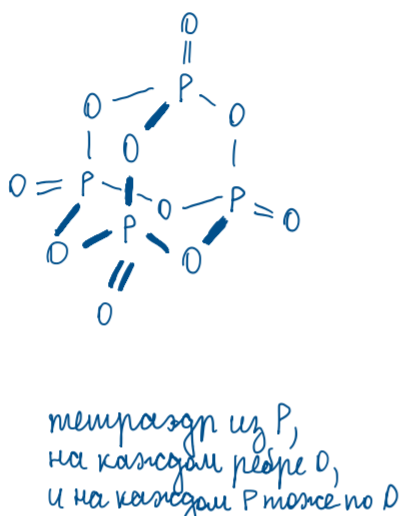 O
||
P
O
O
O
O = P
O
P = O
P
O
O
O
тетраэдр из P,
на каждом ребре O,
и на каждом P тоже по O